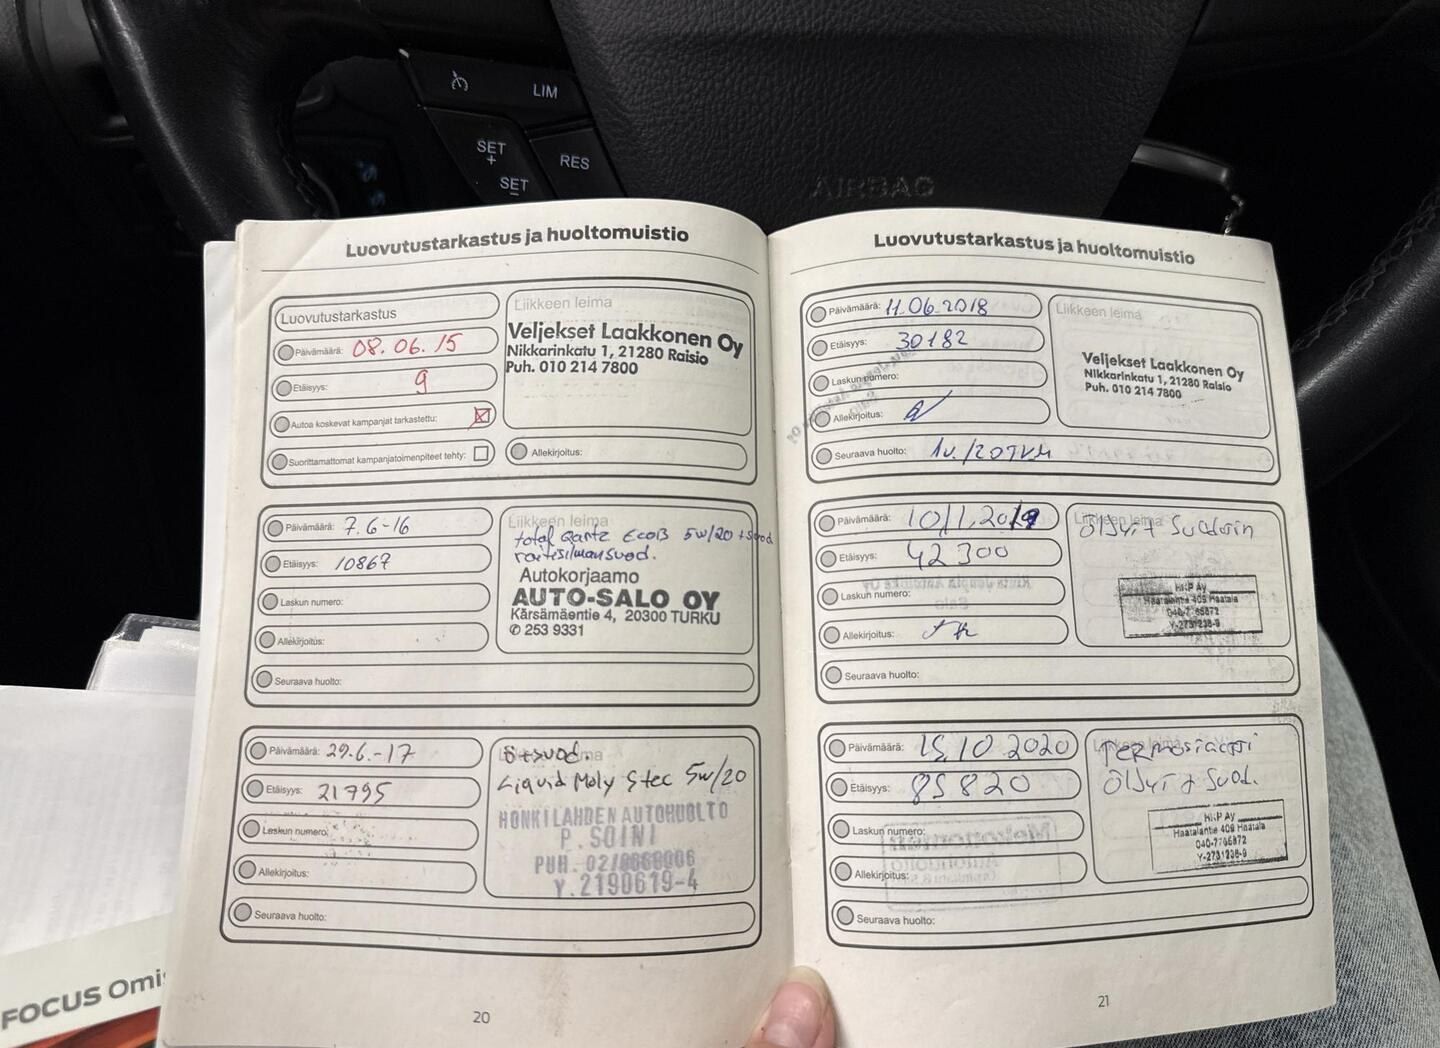 LIM
SET
+
SET
–
RES
AIRBAG
Luovutustarkastus ja huoltomuistio
Luovutustarkastus
Päivämäärä: 08.06.15
Etäisyys: 9
Autoa koskevat kampanjat tarkastettu:
Suorittamattomat kampanjatoimenpiteet tehty:
Liikkeen leima
Veljekset Laakkonen Oy
Nikkarinkatu 1, 21280 Raisio
Puh. 010 214 7800
Allekirjoitus:
Päivämäärä: 7.6-16
Etäisyys: 10867
Laskun numero:
Allekirjoitus:
Seuraava huolto:
Liikkeen leima
total Qartz EcoB 5w/20 + suod
raitisilmansuod.
Autokorjaamo
AUTO-SALO OY
Kärsämäentie 4, 20300 TURKU
✆ 253 9331
Päivämäärä: 29.6.-17
Etäisyys: 21795
Laskun numero:
Allekirjoitus:
Seuraava huolto:
Liquid Moly Stec 5w/20
HONKILAHDEN AUTOHUOLTO
P. SOINI
PUH. 02/8668006
Y.2190619-4
20
Luovutustarkastus ja huoltomuistio
Päivämäärä: 11.06.2018
Etäisyys: 30182
Laskun numero:
Allekirjoitus:
Seuraava huolto: 1v./20TKM
Liikkeen leima
Veljekset Laakkonen Oy
Nikkarinkatu 1, 21280 Raisio
Puh. 010 214 7800
Päivämäärä: 10/1,2019
Etäisyys: 42300
Laskun numero:
Allekirjoitus:
Seuraava huolto:
Liikkeen leima
Öljyt + Suodatin
HKP Ay
Haatalantie 409 Haatala
Y-2731238-9
Päivämäärä: 15.10 2020
Etäisyys: 85820
Laskun numero:
Allekirjoitus:
Seuraava huolto:
Öljyt + Suod.
HKP Ay
Haatalantie 409 Haatala
040-7765872
Y-2731238-9
21
FOCUS Omi